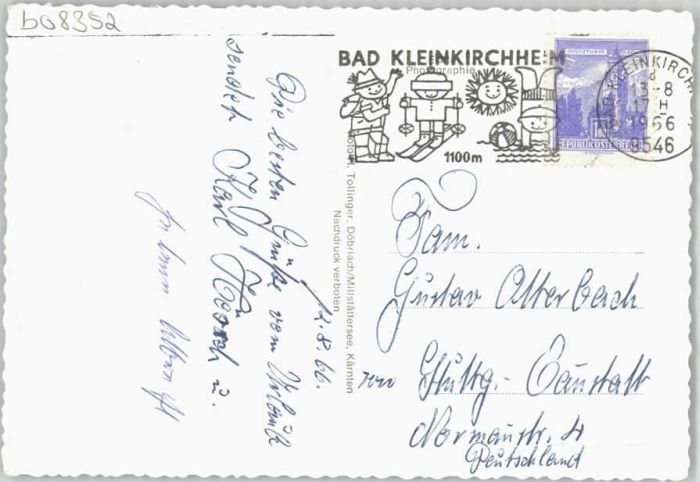 b08352
BAD KLEINKIRCHHEIM
Photographie
1100m
MÜNZTURM
REPUBLIK ÖSTERREICH
KLEINKIRCH
13-8
17H
1966
9546
Tollinger, Döbriach/Millstättersee, Kärnten
Nachdruck verboten
12.8.66.
Die besten Grüße vom Urlaub
sendet Karl
u.
Fam.
Gustav Atterbach
Stuttg.-Canstatt
Normanstr. 4
Deutschland